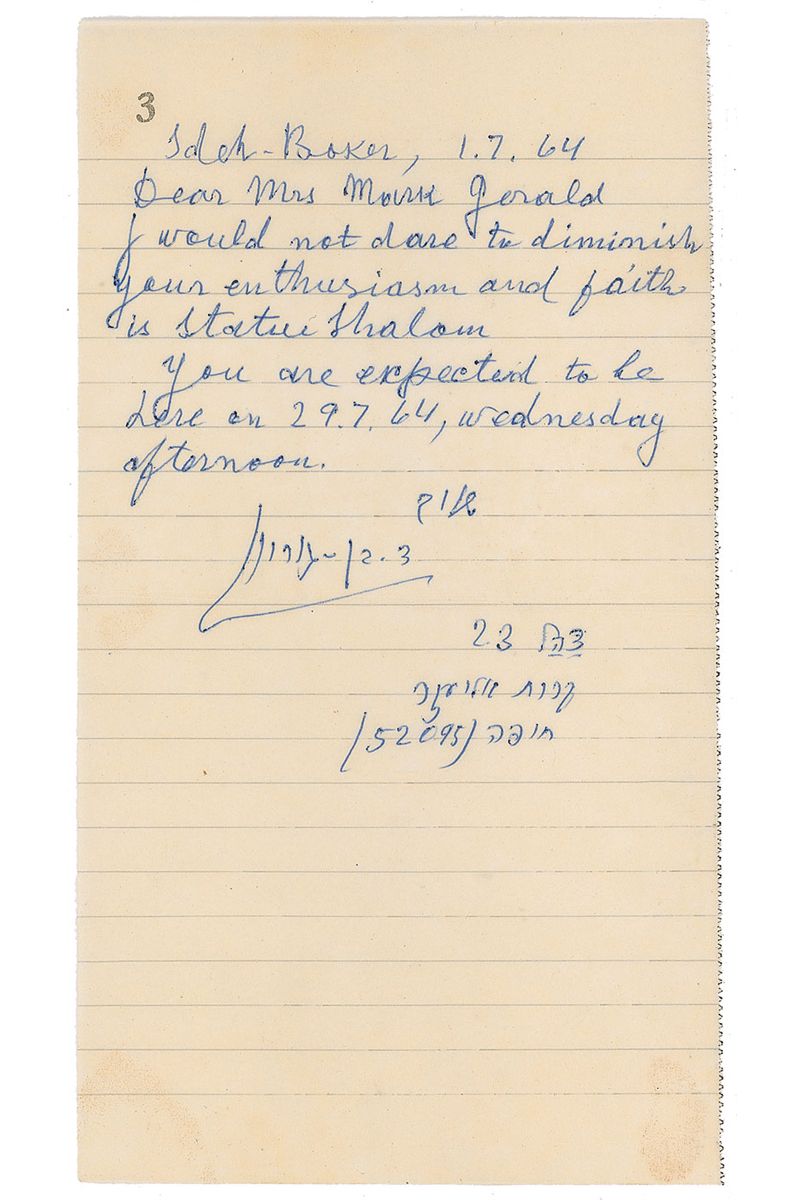 3
Sdeh-Boker, 1.7.64
Dear Mrs Mark Gerald
I would not dare to diminish
your enthusiasm and faith
is Statue Shalom
You are expected to be
here on 29.7.64, wednesday
afternoon.
ד. בן-גוריון
צה"ל 23
קרית אליעזר
חיפה (52095)